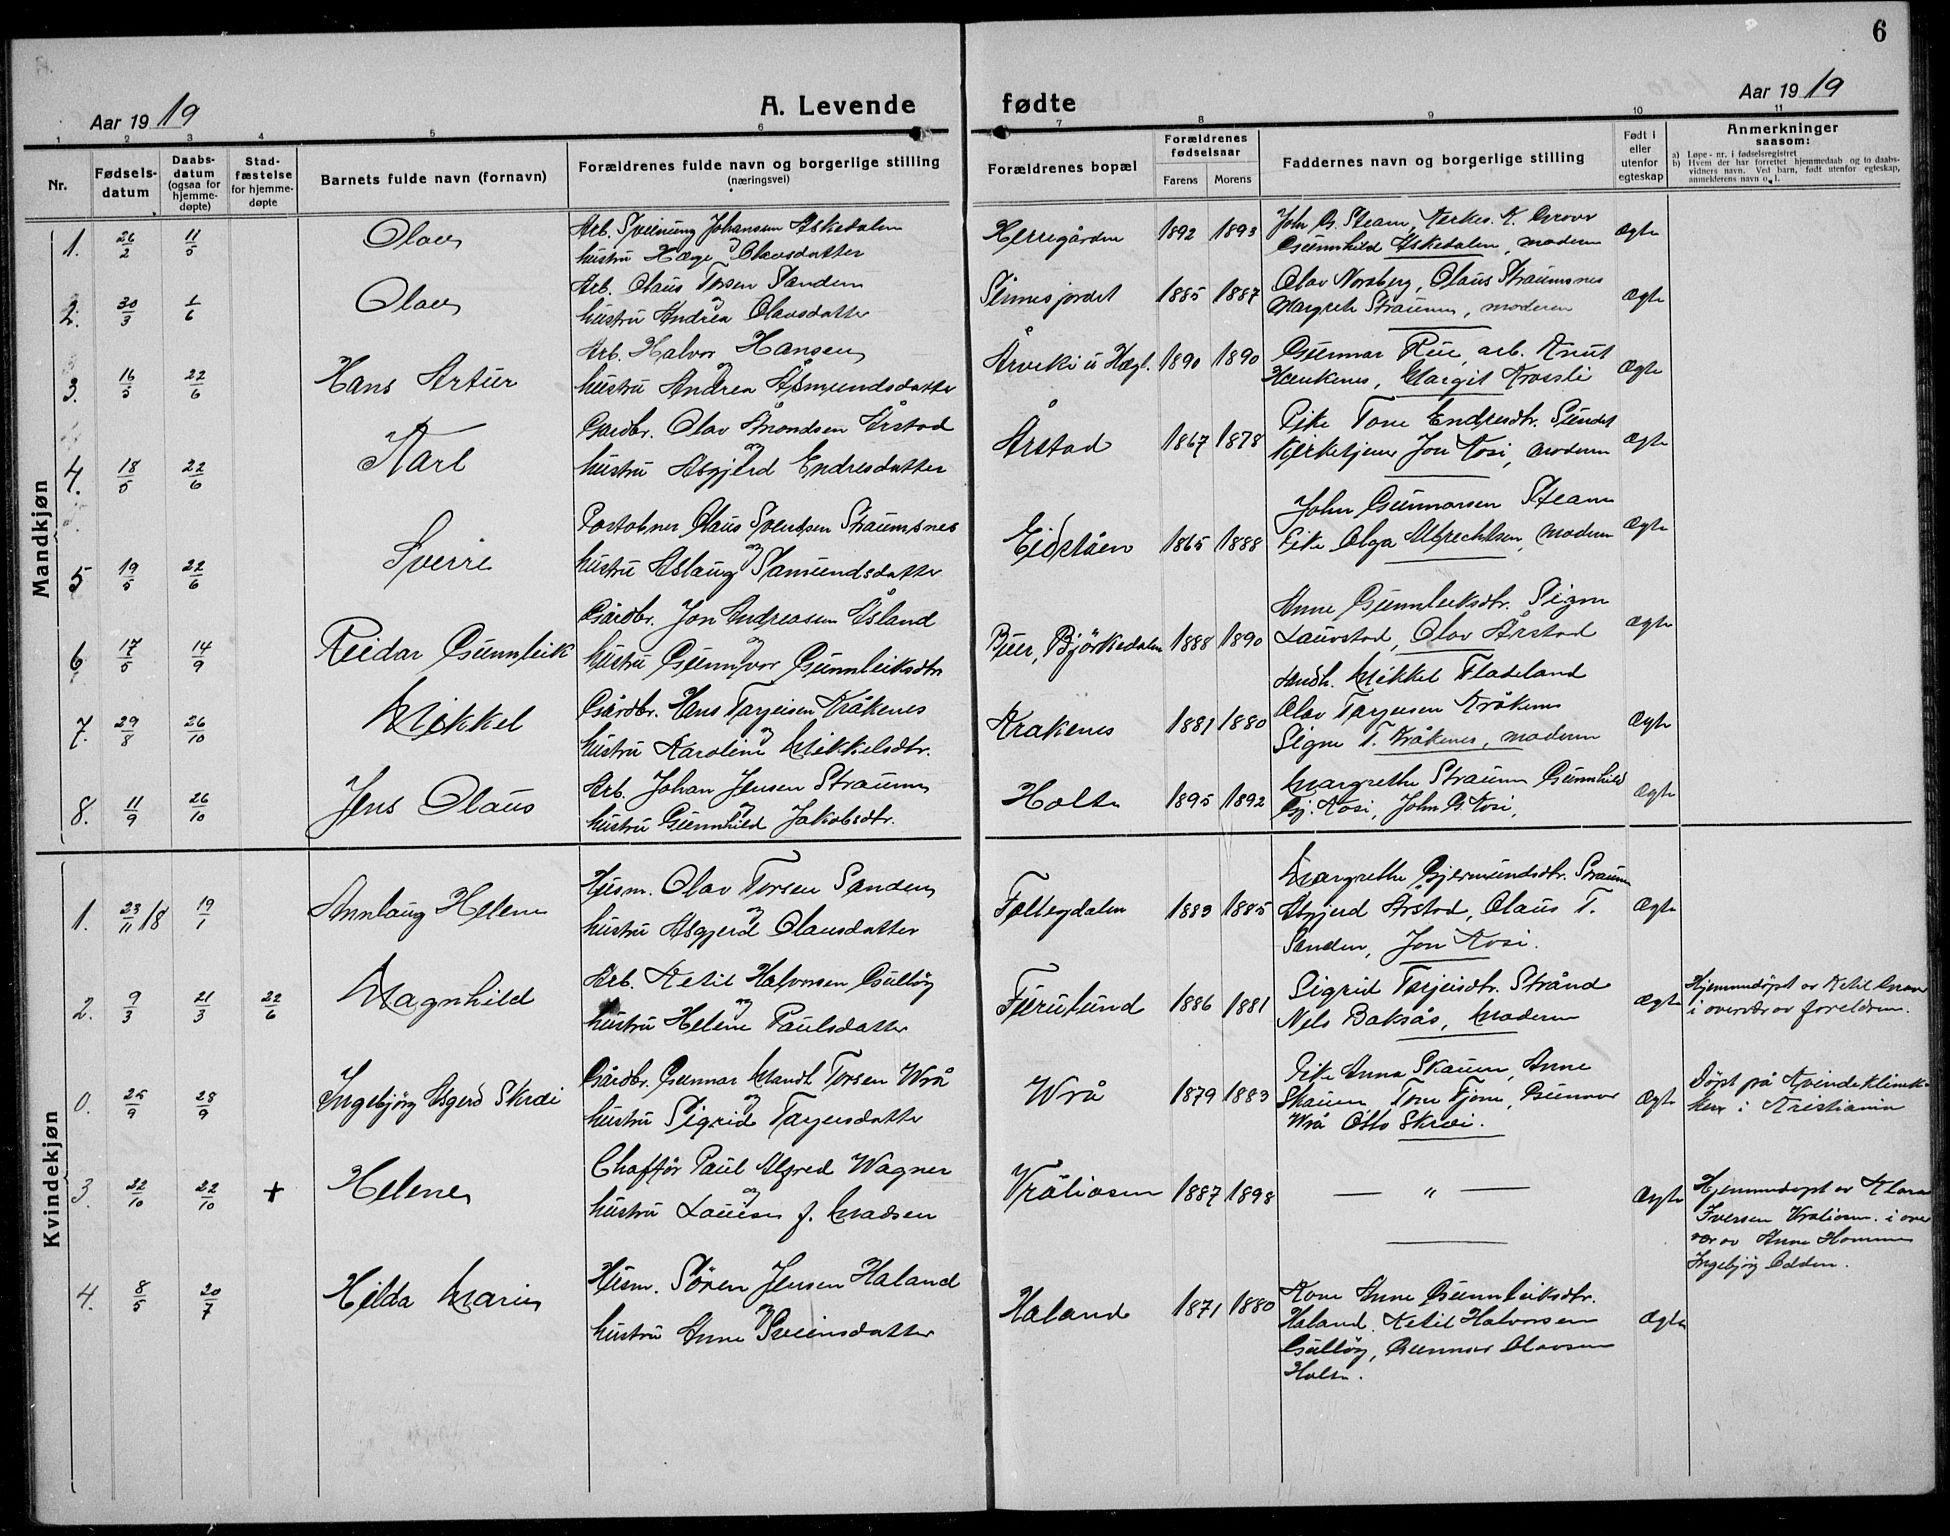 6
Aar 1919
A. Levende fødte
Aar 1919
1 2 3 4 5 6 7 8 9 10 11
Nr.
Fødsels-
datum
Daabs-
datum
(ogsaa for
hjemme-
døpte)
Stad-
fæstelse
for hjemme-
døpte
Barnets fulde navn (fornavn)
Forældrenes fulde navn og borgerlige stilling
(næringsvei)
Forældrenes bopæl
Forældrenes
fødselsaar
Farens Morens
Faddernes navn og borgerlige stilling
Født i
eller
utenfor
egteskap
Anmerkninger
saasom:
a) Løpe-nr. i fødselsregistret
b) Hvem der har forrettet hjemmedaab og to daabs-
vidners navn. Ved barn, født utenfor egteskap,
anmelderens navn o. l.
Mandkjøn
1. 26/2 11/5 Olav
Arb. Sveinung Johansen Askedalen
og
hustru Hæge Olavsdatter
Herregården 1892 1893
John G. Steam, K. Groven
Gunnhild Askedalen, moderen
Ægte
2. 30/3 1/6 Olav
Arb. Olaus Torsen Sanden
og
hustru Andrea Olavsdatter
Sinnesjordet 1885 1887
Olav Norsberg, Olaus Straumsnes
Margrete Straume, moderen
Ægte
3. 16/5 22/6 Hans Artur
Arb. Halvor Hansen
og
hustru Andrea Åsmundsdatter
Årviki u Hægl. 1890 1890
Gunnar Rue, arb. Knut
Haukenes, Margit Krossli
Ægte
4. 18/5 22/6 Karl
Gardbr. Olav Åmondsen Årstad
og
hustru Asgjerd Endresdatter
Årstad 1867 1878
Pike Tone Endresdtr. Sundet
Kirketjener Jon Kosi, moderen
Ægte
5 19/5 22/6 Sverre
Postobner Olaus Svendsen Straumsnes
og
hustru Aslaug Samundsdatter
Eidståen 1865 1888
John Gunnarsen Steam
Pike Olga Albrechtsen, moderen
Ægte
6 17/5 14/9 Reidar Gunnleik
Gårdbr. Jon Andreasen Åsland
og
hustru Gunnvor Gunnleiksdtr
Buer, Björkedalen 1888 1890
Anne Gunnleiksdtr. Signe
Lauvstad, Olav Årstad
Ægte
7. 29/8 26/10 Mikkel
Gårdbr. Hans Tarjeisen Kråkenes
og
hustru Karoline Mikkelsdtr.
Krakenes 1881 1880
Landh. Mikkel Fladeland
Olav Tarjeisen Kråkenes
Signe T. Kråkenes, moderen
Ægte
8. 11/9 26/10 Jens Olaus
Arb. Johan Jensen Straume
og
hustru Gunnhild Jakobsdtr.
Holte 1895 1892
Margrethe Straume Gunnhild
Gj. Kosi, John G. Kosi,
Ægte
Kvindekjøn
1. 23/11 18 19/1 Annlaug Helene
Husm. Olav Torsen Sanden
og
hustru Asgjerd Olausdatter
1883 1885
Margrethe Gjermundsdtr. Straume
Asgjerd Årstad, Olaus T.
Sanden, Jon Kosi.
Ægte
2. 9/3 21/3 22/6 Magnhild
Arb. Ketil Halvorsen Gulløy
og
hustru Helene Paulsdatter
Furulund 1886 1881
Sigrid Tarjeisdtr. Strånd
Nils Baksås, Moderen
Ægte
Hjemmedøpt av Ketil
i overvær av foreldrene.
0. 25/9 28/9 Ingebjörg Asgerd Skrei
Gårdbr. Gunnar Mandt Torsen Wrå
og
hustru Sigrid Tarjeisdatter
Wrå 1879 1883
Pike Anna Skauen, Anne
Skauen Tone Tjom, Gunnar
Wrå Otto Skrei.
Ægte
Døpt på Kvindeklinik-
ken i Kristiania
3. 22/10 22/10 + Helene
Chaffør Paul Alfred Wagner
og
hustru Louise f. Madsen
Vråliosen 1887 1898
— „ —
Ægte
Hjemmedøpt av Klara
Iversen Vraliosen i over
vær av Anne Hommen
Ingebjög Odden.
4. 8/5 20/7 Hilda Marie
Husm. Sören Jensen Haland
og
hustru Anne Sveinsdatter
Haland 1871 1880
Kone Anne Gunnleiksdtr.
Haland, Ketil Halvorsen
Gulløy, Gunnar Olavsen
Holte.
Ægte